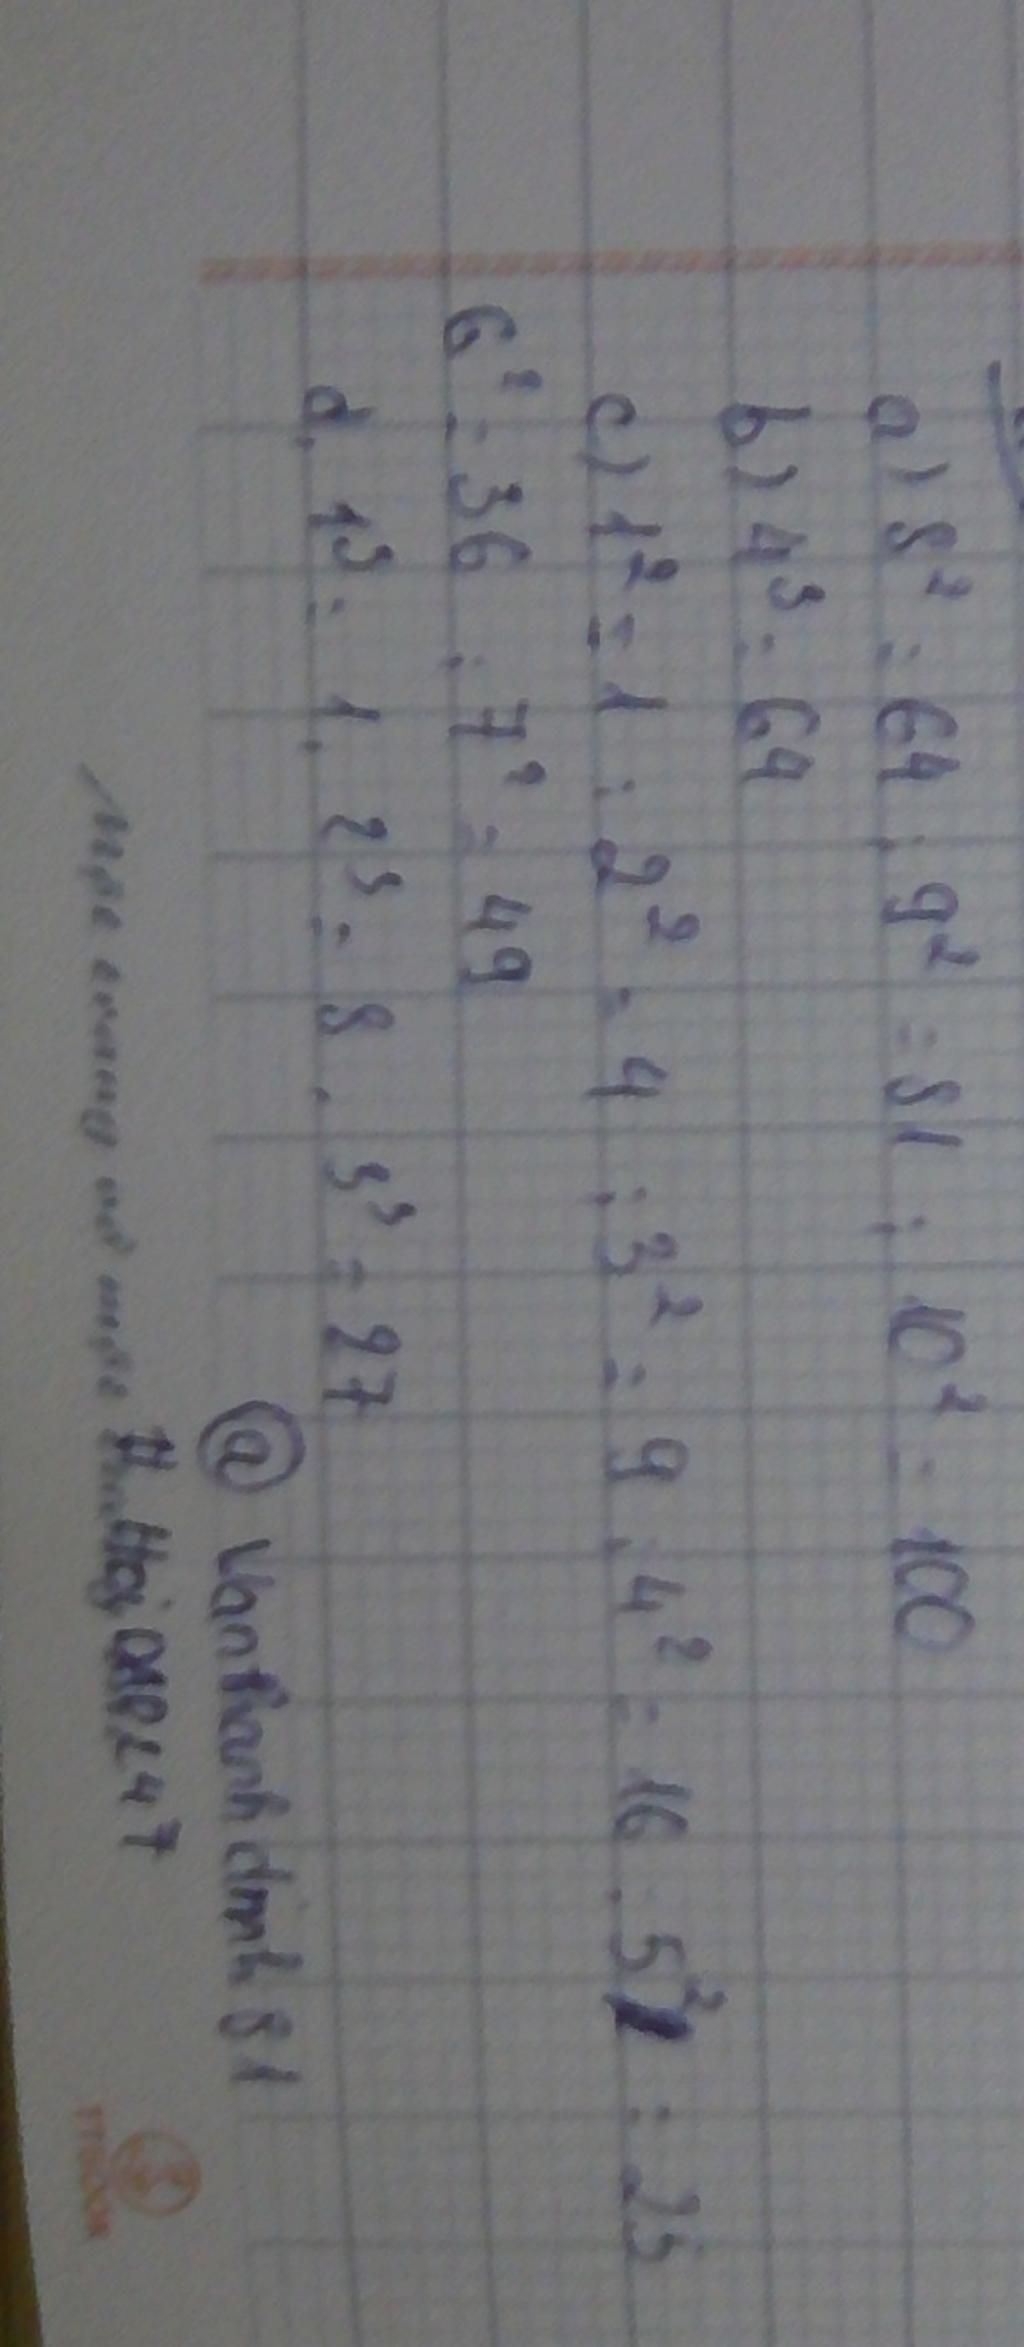 a) 8² = 64 ; 9² = 81 ; 10² = 100
b) 4³ = 64
c) 1² = 1 ; 2² = 4 ; 3² = 9 . 4² = 16 . 5² = 25
6² = 36 ; 7² = 49
d, 1³ = 1, 2³ = 8 . 3³ = 27
@ Vankhanhdinh81